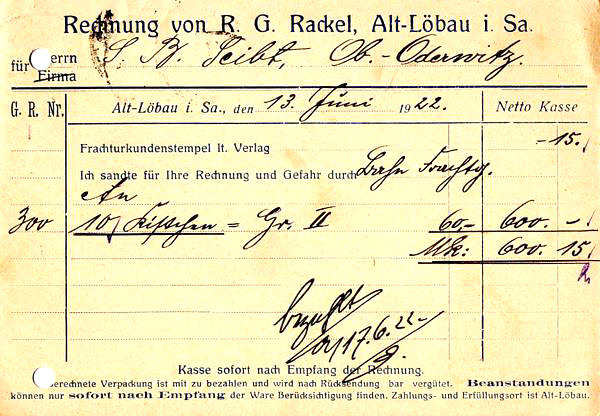 Rechnung von R. G. Rackel, Alt-Löbau i. Sa.
für Herrn S. B. Seibt, Ob.-Oderwitz.
Firma
G. R. Nr. Alt-Löbau i. Sa., den 13. Juni 1922. Netto Kasse
Frachturkundenstempel lt. Verlag -15.
Ich sandte für Ihre Rechnung und Gefahr durch Bahn Frachtg.
An
300 10/ Kistchen = Gr. II 60,- 600. -.
Mk: 600. 15.
bezahlt
17.6.22.
Kasse sofort nach Empfang der Rechnung.
Berechnete Verpackung ist mit zu bezahlen und wird nach Rücksendung bar vergütet. Beanstandungen
können nur sofort nach Empfang der Ware Berücksichtigung finden. Zahlungs- und Erfüllungsort ist Alt-Löbau.